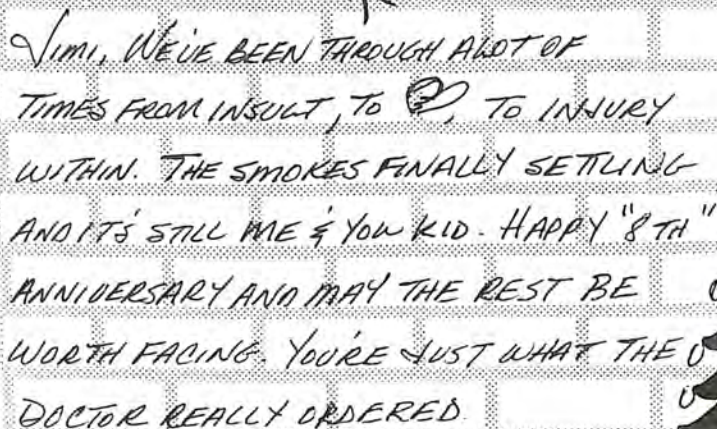 Jimi, WE'VE BEEN THROUGH ALOT OF
TIMES FROM INSULT, TO ♡, TO INJURY
WITHIN. THE SMOKES FINALLY SETTLING
AND IT'S STILL ME & YOU KID. HAPPY "8TH"
ANNIVERSARY AND MAY THE REST BE
WORTH FACING. YOU'RE JUST WHAT THE
DOCTOR REALLY ORDERED.